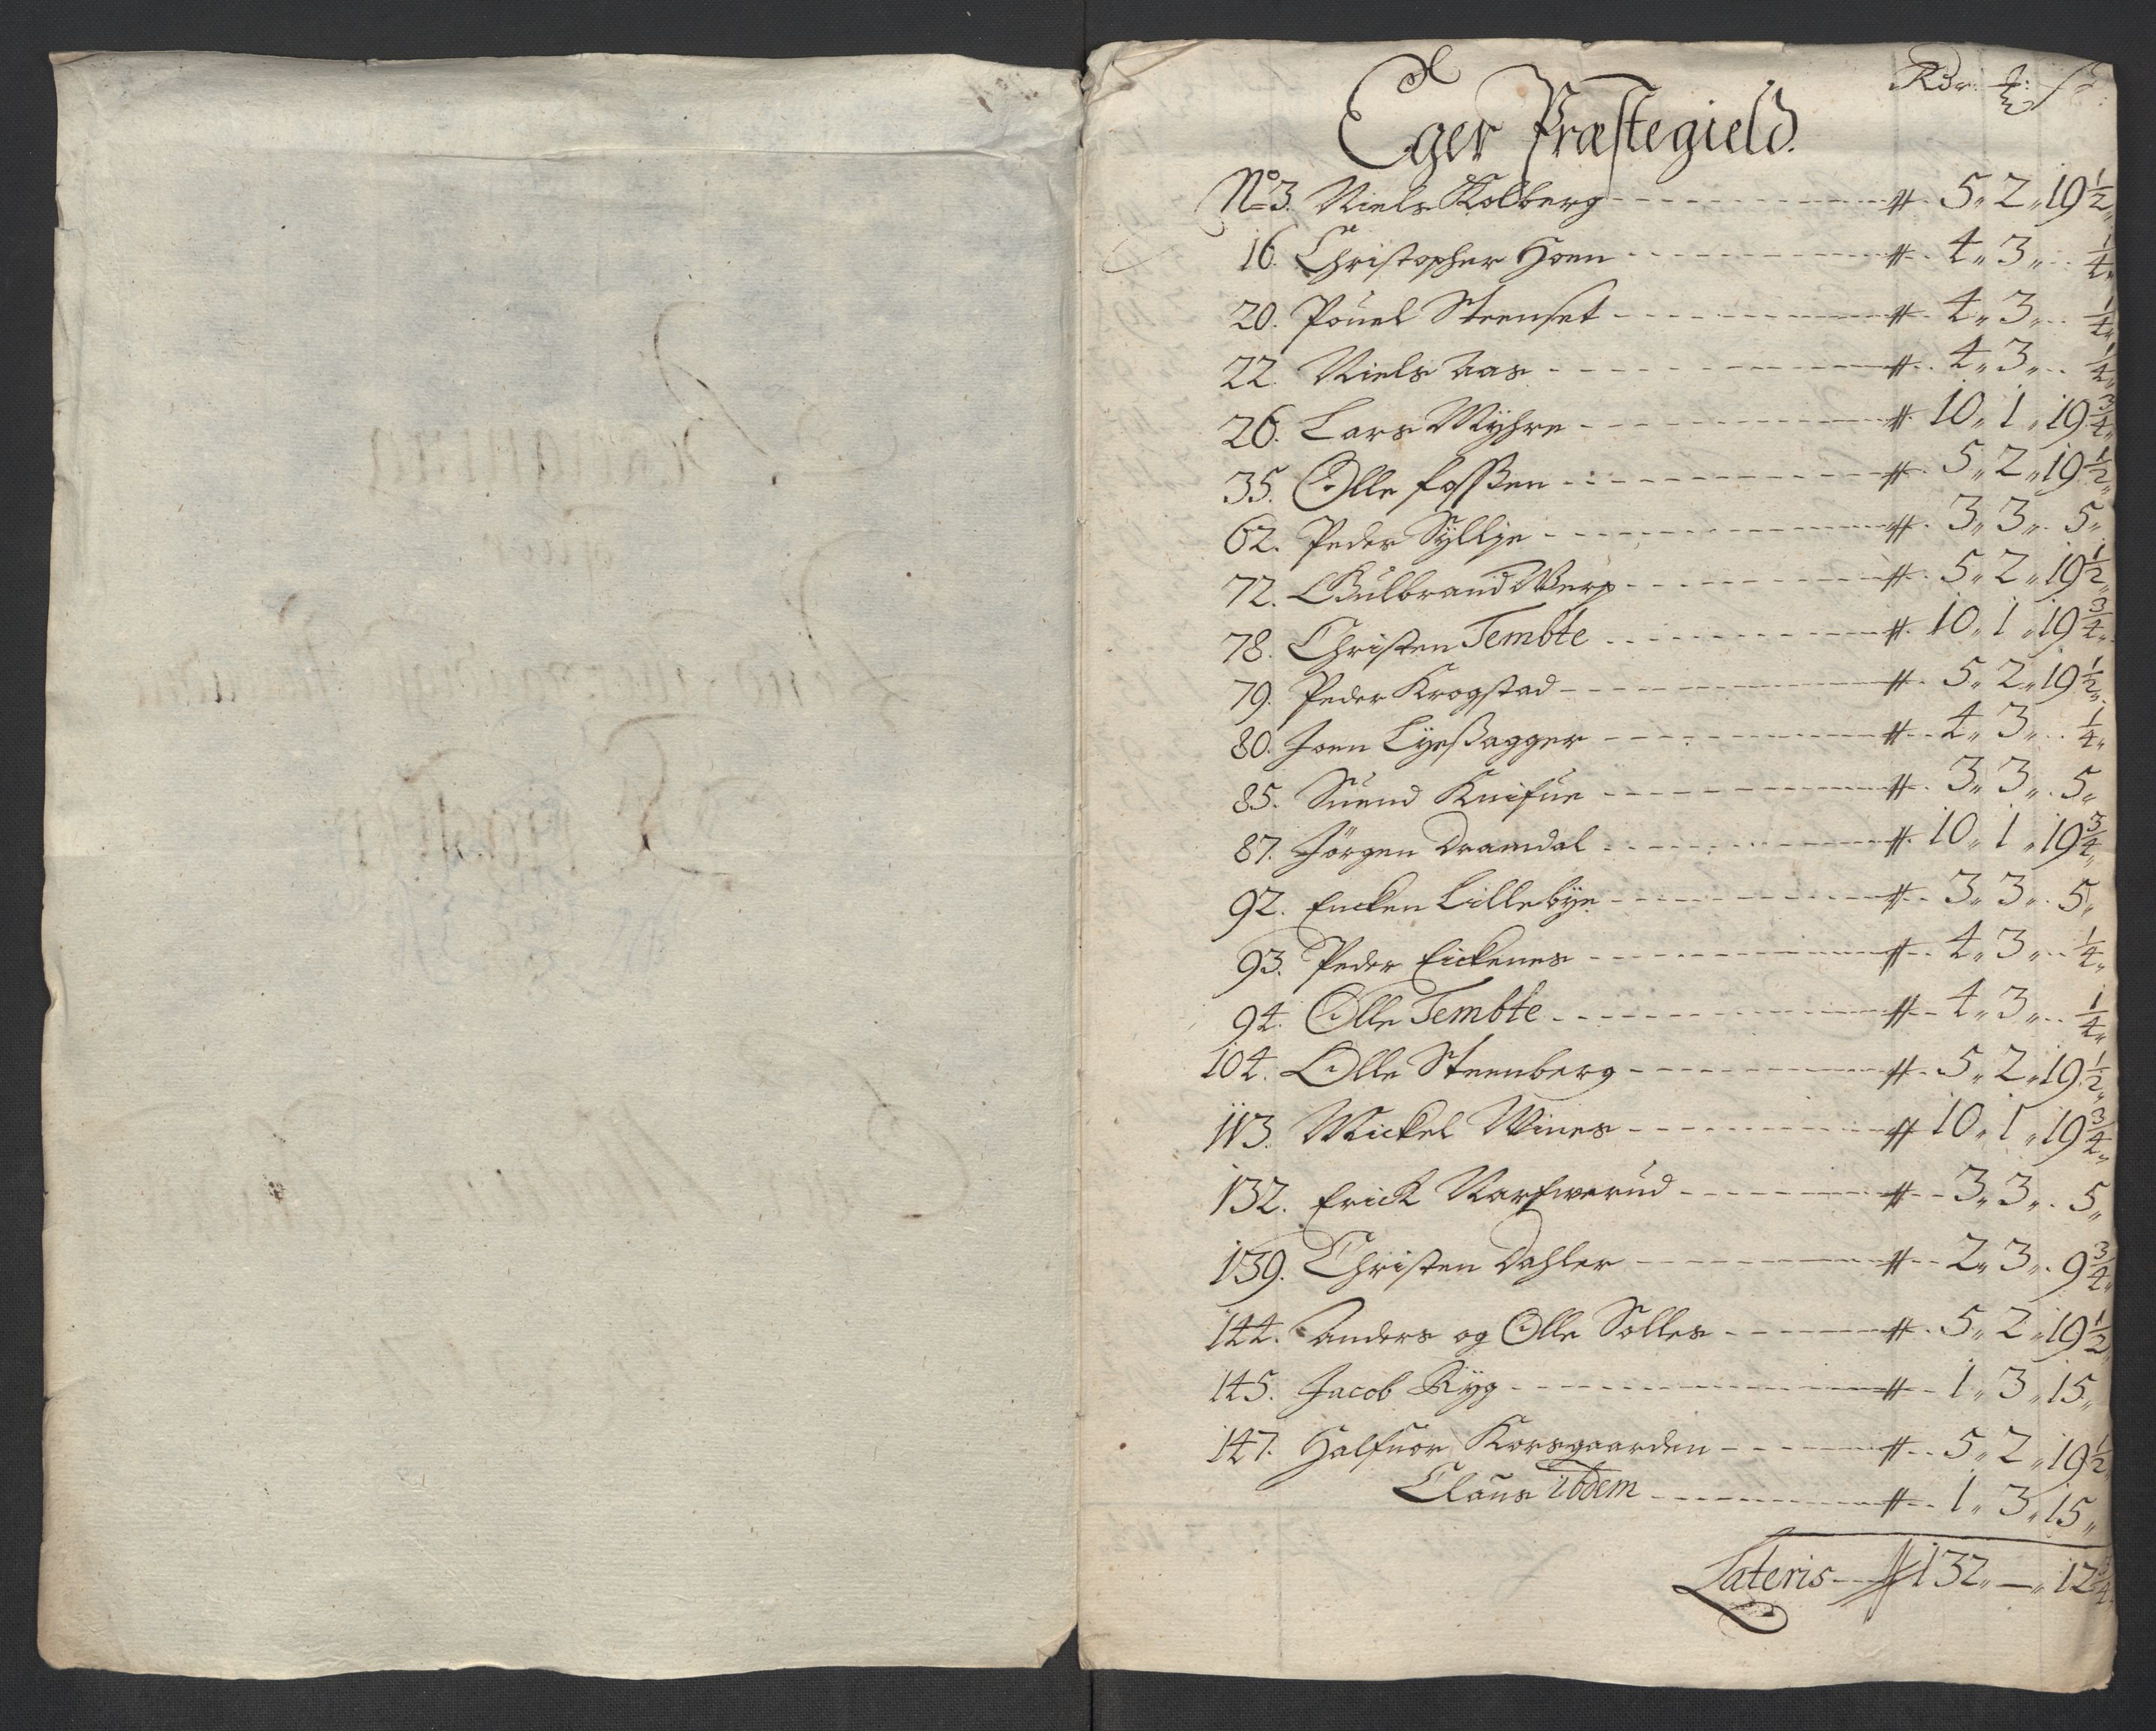 Rdr: ℔: ß
Eger Præstegield.
No 3. Niels Kolberg - - - # 5 " 2 " 19 1/2 "
16. Christopher Hoen - - - # 4 " 3 " - 1/4 "
20. Pouel Steenset - - - # 4 " 3 " - 1/4 "
22. Niels Aas - - - # 4 " 3 " - 1/4 "
26. Lars Myhre - - - # 10 " 1 " 19 3/4 "
35. Olle Fosßen - - - # 5 " 2 " 19 1/2 "
62. Peder Syllje - - - # 3 " 3 " 5 "
72. Gulbrand Werp - - - # 5 " 2 " 19 1/2 "
78. Christen Tembte - - - # 10 " 1 " 19 3/4 "
79. Peder Krogstad - - - # 5 " 2 " 19 1/2 "
80. Joen Lyeßagger - - - # 4 " 3 " - 1/4 "
85. Suend Knifue - - - # 3 " 3 " 5 "
87. Jörgen Dramdal - - - # 10 " 1 " 19 3/4 "
92. Encken Lillebye - - - # 3 " 3 " 5 "
93. Peder Eickenes - - - # 4 " 3 " - 1/4 "
94. Olle Tembte - - - # 4 " 3 " - 1/4 "
104. Olle Steenberg - - - # 5 " 2 " 19 1/2 "
113. Mickel Wines - - - # 10 " 1 " 19 3/4 "
132. Erick Narfwerud - - - # 3 " 3 " 5 "
139. Christen Dahler - - - # 2 " 3 " 9 3/4 "
144. Anders og Olle Solles - - - # 5 " 2 " 19 1/2 "
145. Jacob Ryg - - - # 1 " 3 " 15 "
147. Halfuor Korsgaarden - - - # 5 " 2 " 19 1/2 "
Claus ibdem - - - # 1 " 3 " 15 "
Lateris - - # 132 " — " 12 3/4